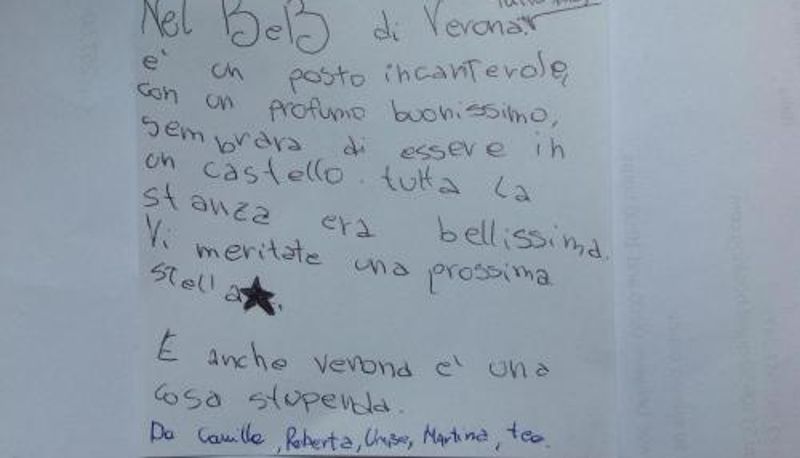 Nel BeB di Verona
e' un posto incantevole,
con un profumo buonissimo,
sembrava di essere in
un castello. tutta la
stanza era bellissima.
Vi meritate una prossima
stella★.
E anche verona e' una
cosa stupenda.
Da Camilla, Roberta, Martina, teo.